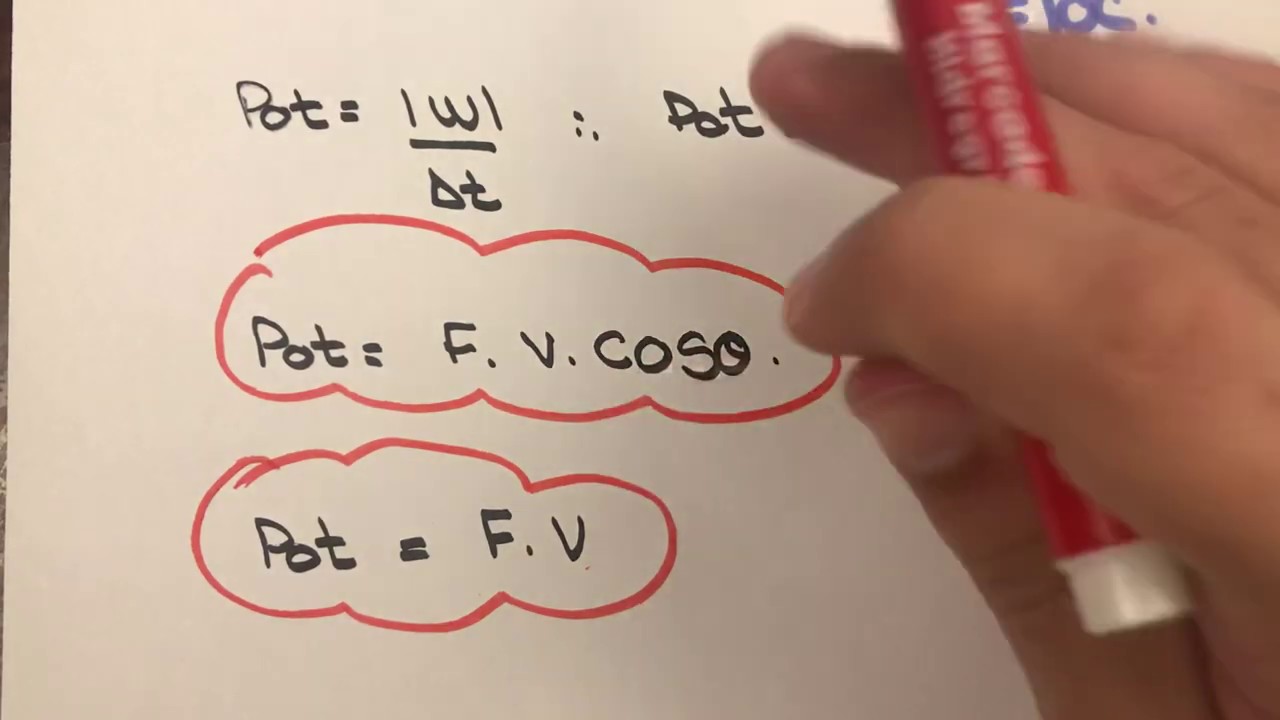 Pot = |W| / Δt ∴ Pot
Pot = F. V. COSθ.
Pot = F. V